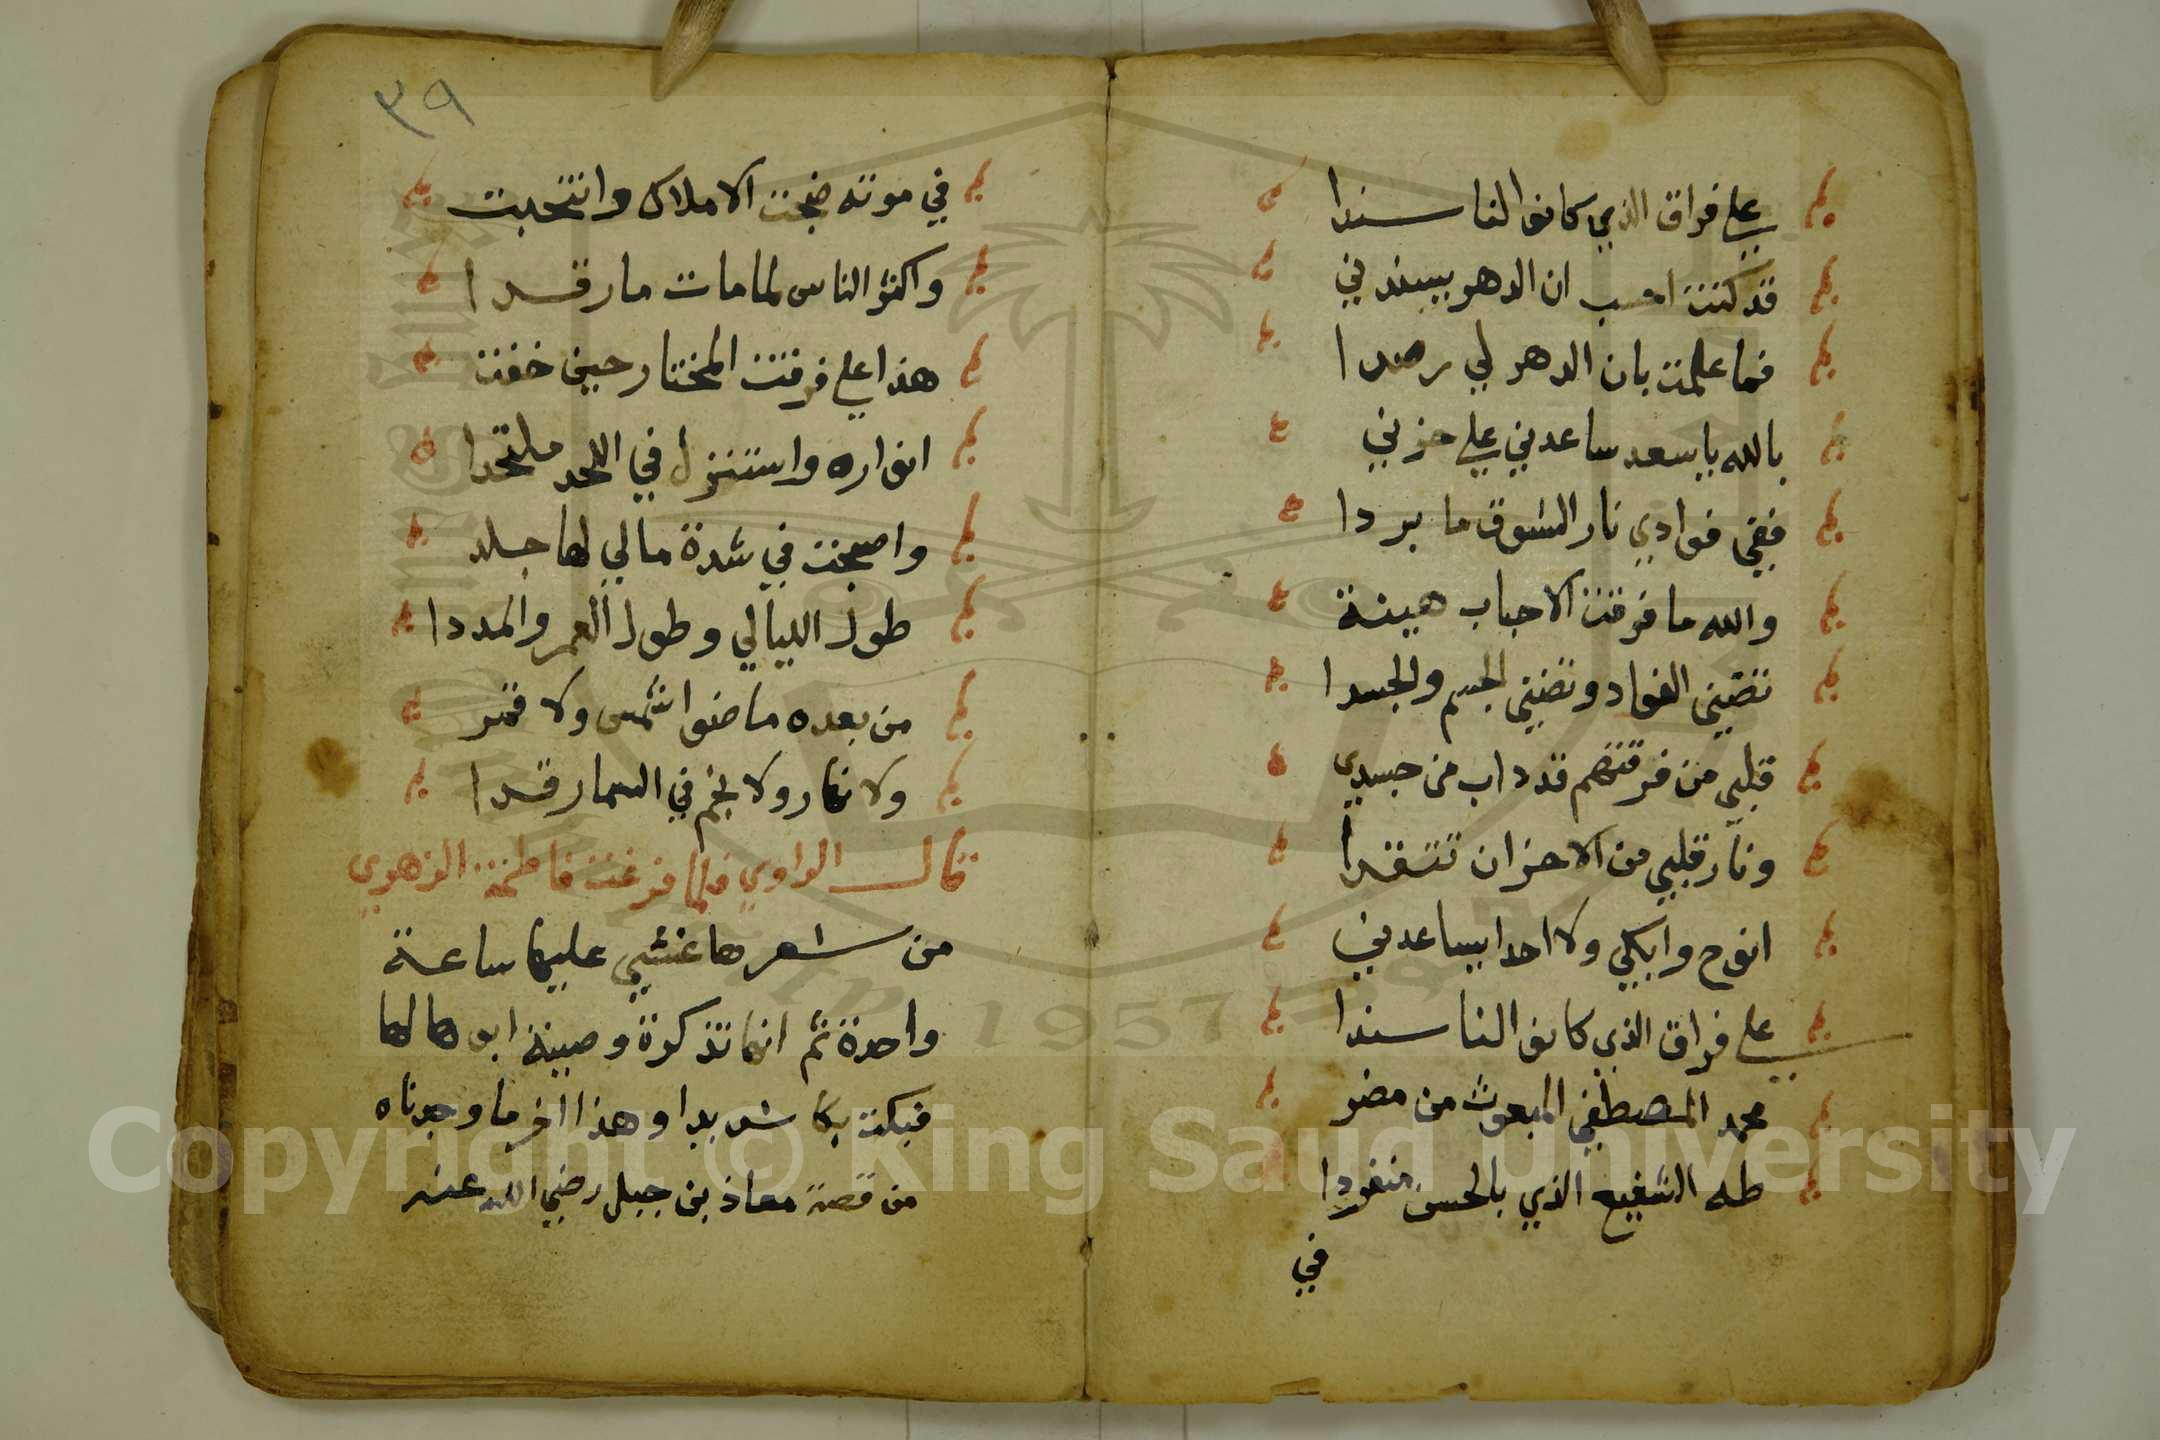 علي فراق الذي كانوا لنا سندا
قد كنت احسب ان الدهر يسندني
فما علمت بان الدهر لي رصدا
بالله يا سعد ساعدني علي حزني
ففي فوادي نار الشوق ما بردا
والله ما فرقت الاحباب هينة
تضني الفواد وتضني الجسم والجسدا
قلبي من فرقتهم قد داب من جسدي
ونار قلبي من الاحزان تتقدا
انوح وابكي ولا احدا يساعدني
علي فراق الذي كانوا لنا سندا
محمد المصطفي المبعوث من مضر
طه الشفيع الذي بالحسن منفردا
في
٣٩
في موته ضجت الاملاك وانتحبت
واكثر الناس لما مات ما رقدا
هذا علي فرقت المختار حين خفت
انواره واستنزل في اللحد ملتحدا
واصبحت في شدة مالي لها جلد
طول الليالي وطول العمر والمددا
من بعده ما ضوا شمس ولا قمر
ولا نهار ولا نجم في السما رقدا
قال الراوي فلما فرغت فاطمة الزهري
من شعرها غشي عليها ساعة
واحدة ثم انها تذكرة وصية ابوها لها
فبكت بكا شديدا وهذا اخر ما وجدناه
من قصة معاذ بن جبل رضي الله عنه
Copyright © King Saud University
1957